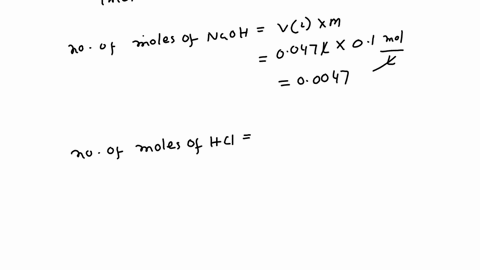 no. of moles of NaOH = V(L) x m
= 0.047 L x 0.1 mol/L
= 0.0047
no. of moles of HCl =